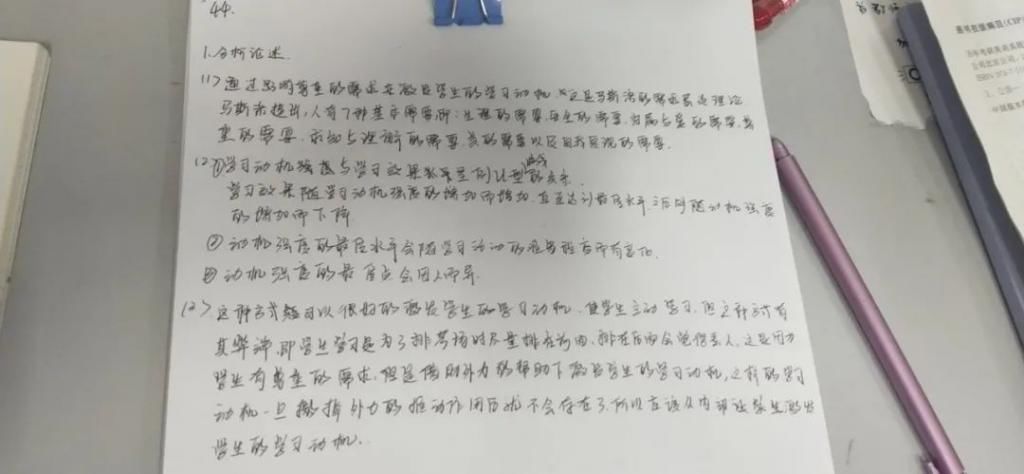 44.
1.分析论述.
(1) 通过影响尊重的需求去激发学生的学习动机,这是马斯洛的需求层次理论
马斯洛提出,人有7种基本需要即:生理的需要,安全的需要,归属与爱的需要,尊
重的需要,求知与理解的需要,美的需要以及自我实现的需要.
(2) ①学习动机强度与学习效果并不呈倒U型曲线的关系.
学习效果随学习动机强度的增加而增加,直至达到最佳水平.之后则随动机强度
的增加而下降
②动机强度的最佳水平会随学习活动的难易程度而有变化.
③动机强度的最佳点会因人而异.
(3) 这种方式虽可以很好的激发学生的学习动机,使学生主动学习.但这种方式有
其弊端,即学生学习是为了排考场时尽量排在前面,排在后面会觉得丢人,这是因为
学生有尊重的需求,但是借助外力的帮助下激发学生的学习动机,这样的学习
动机一旦撤掉外力的推动作用后就不会存在了.所以应该从内部让学生激发
学生的学习动机.